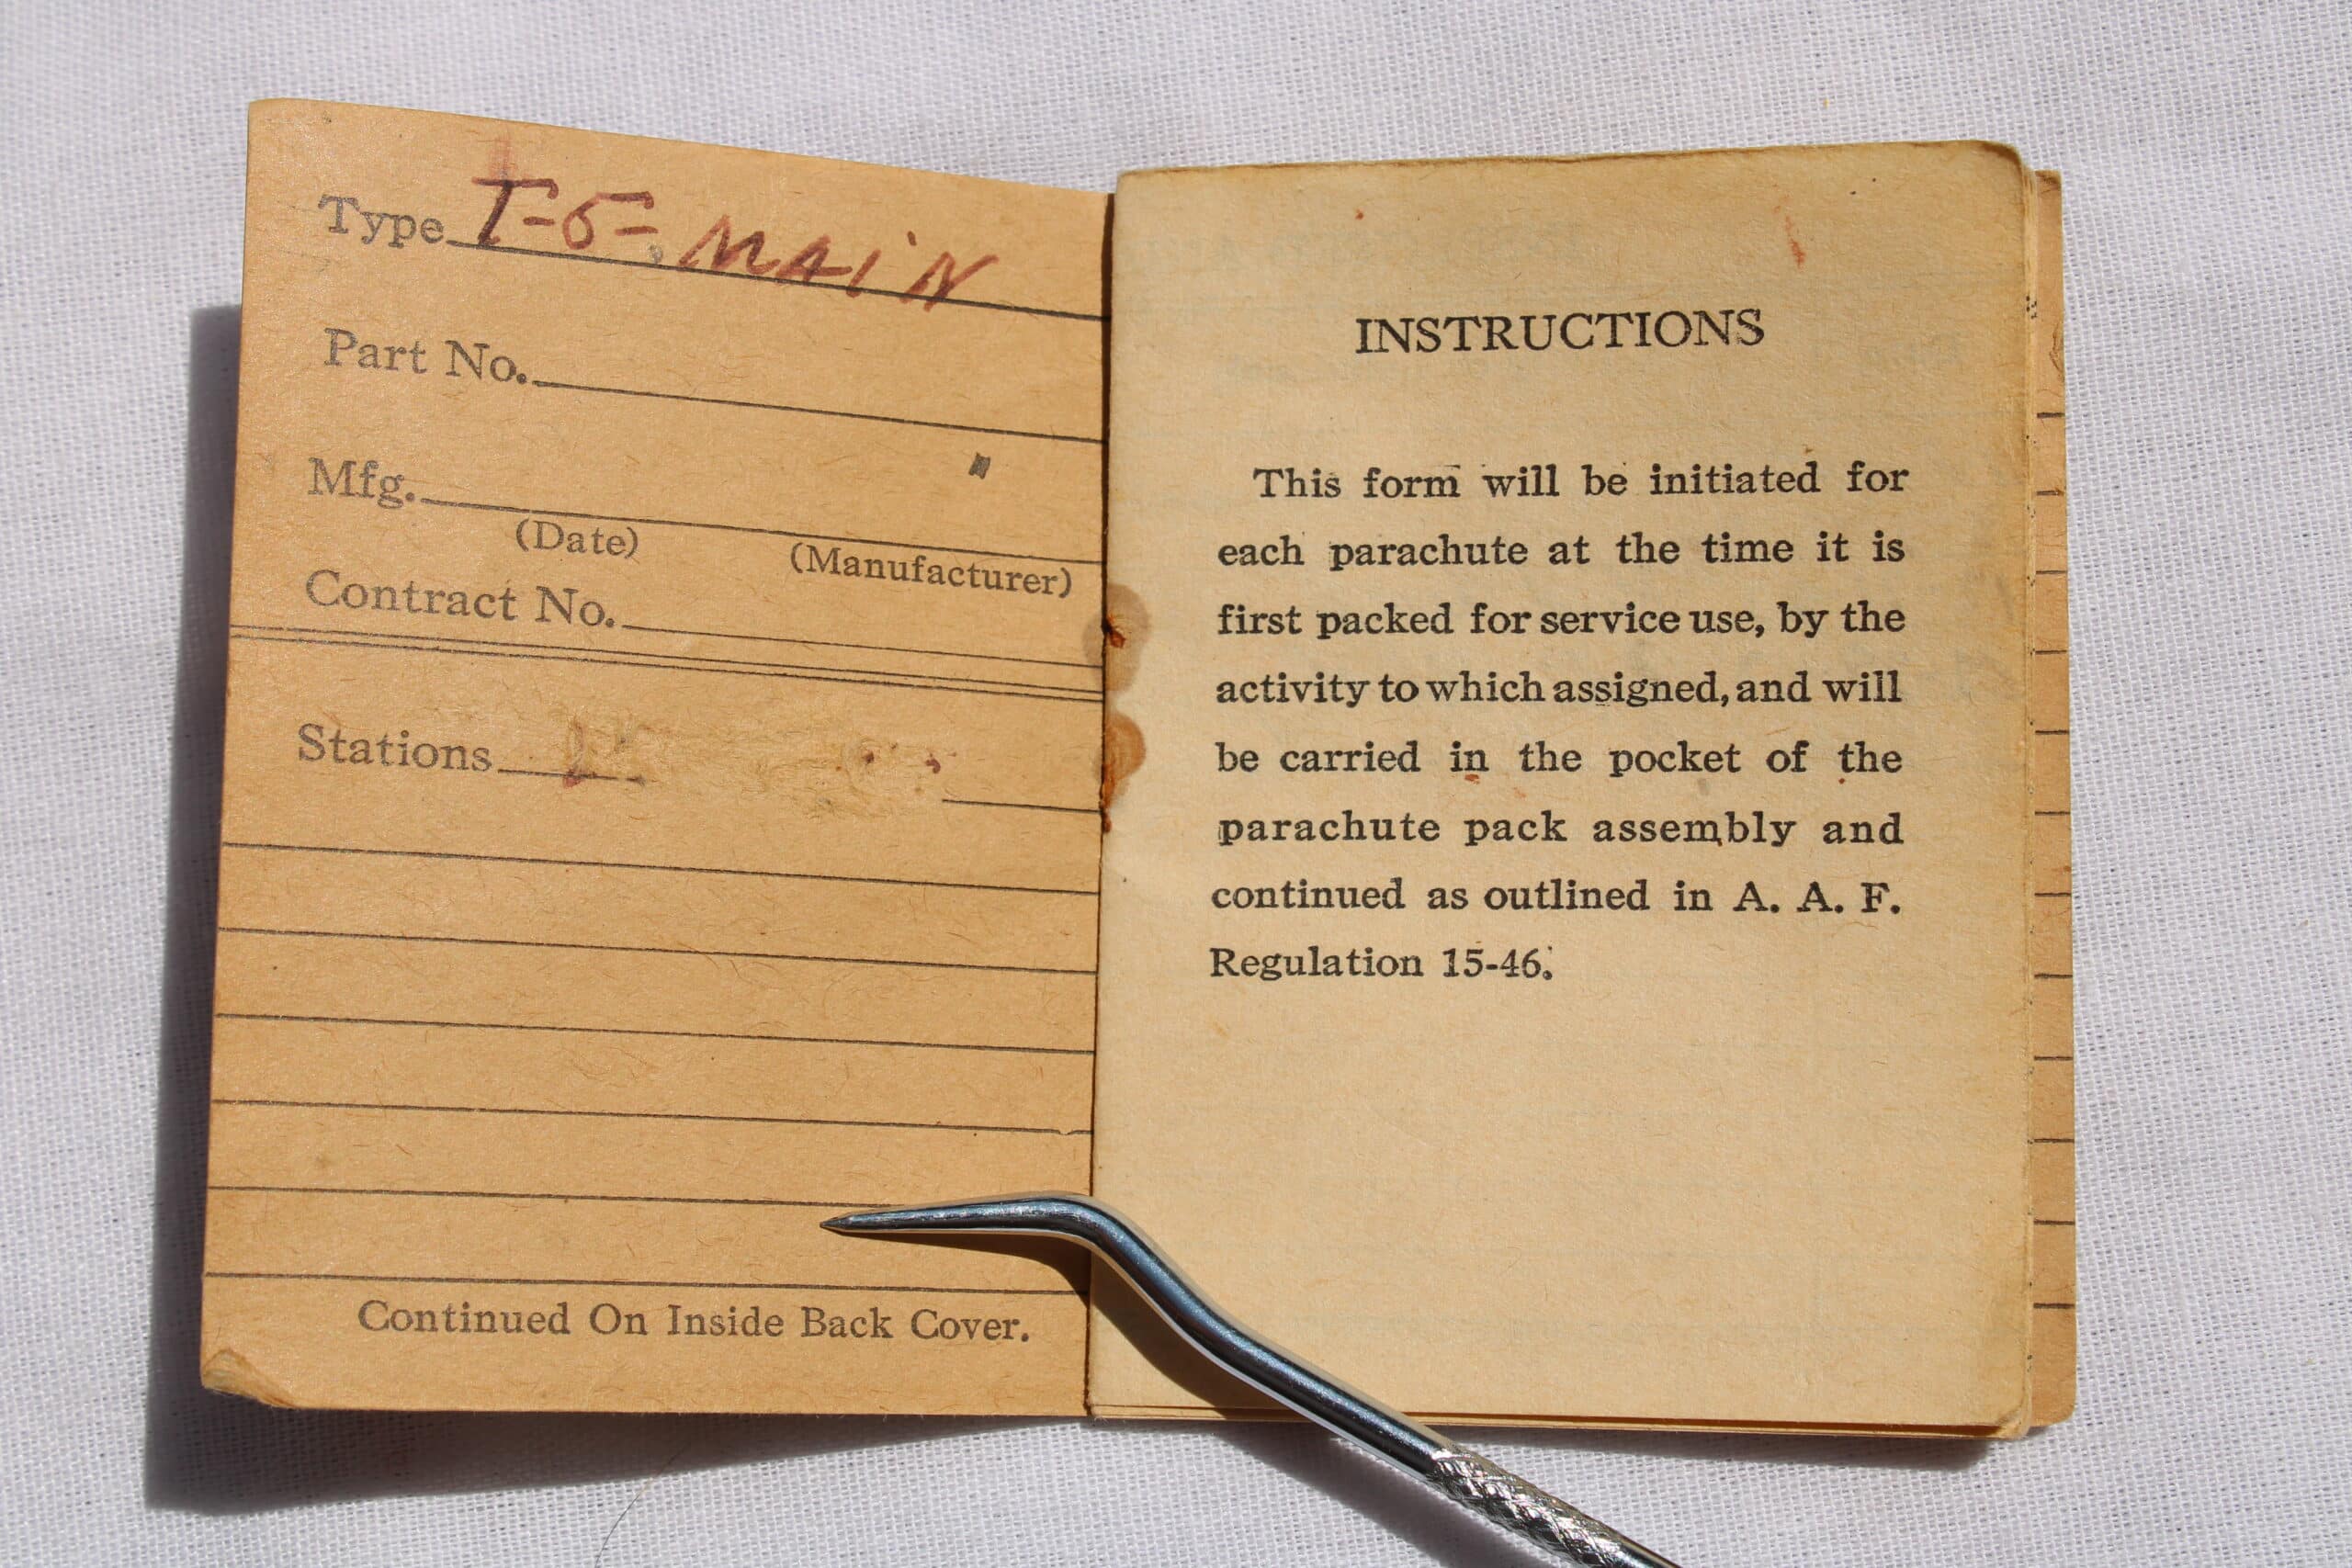 Type T-5-, MAiN
Part No.
Mfg.
(Date) (Manufacturer)
Contract No.
Stations
Continued On Inside Back Cover.
INSTRUCTIONS
This form will be initiated for
each parachute at the time it is
first packed for service use, by the
activity to which assigned, and will
be carried in the pocket of the
parachute pack assembly and
continued as outlined in A. A. F.
Regulation 15-46.